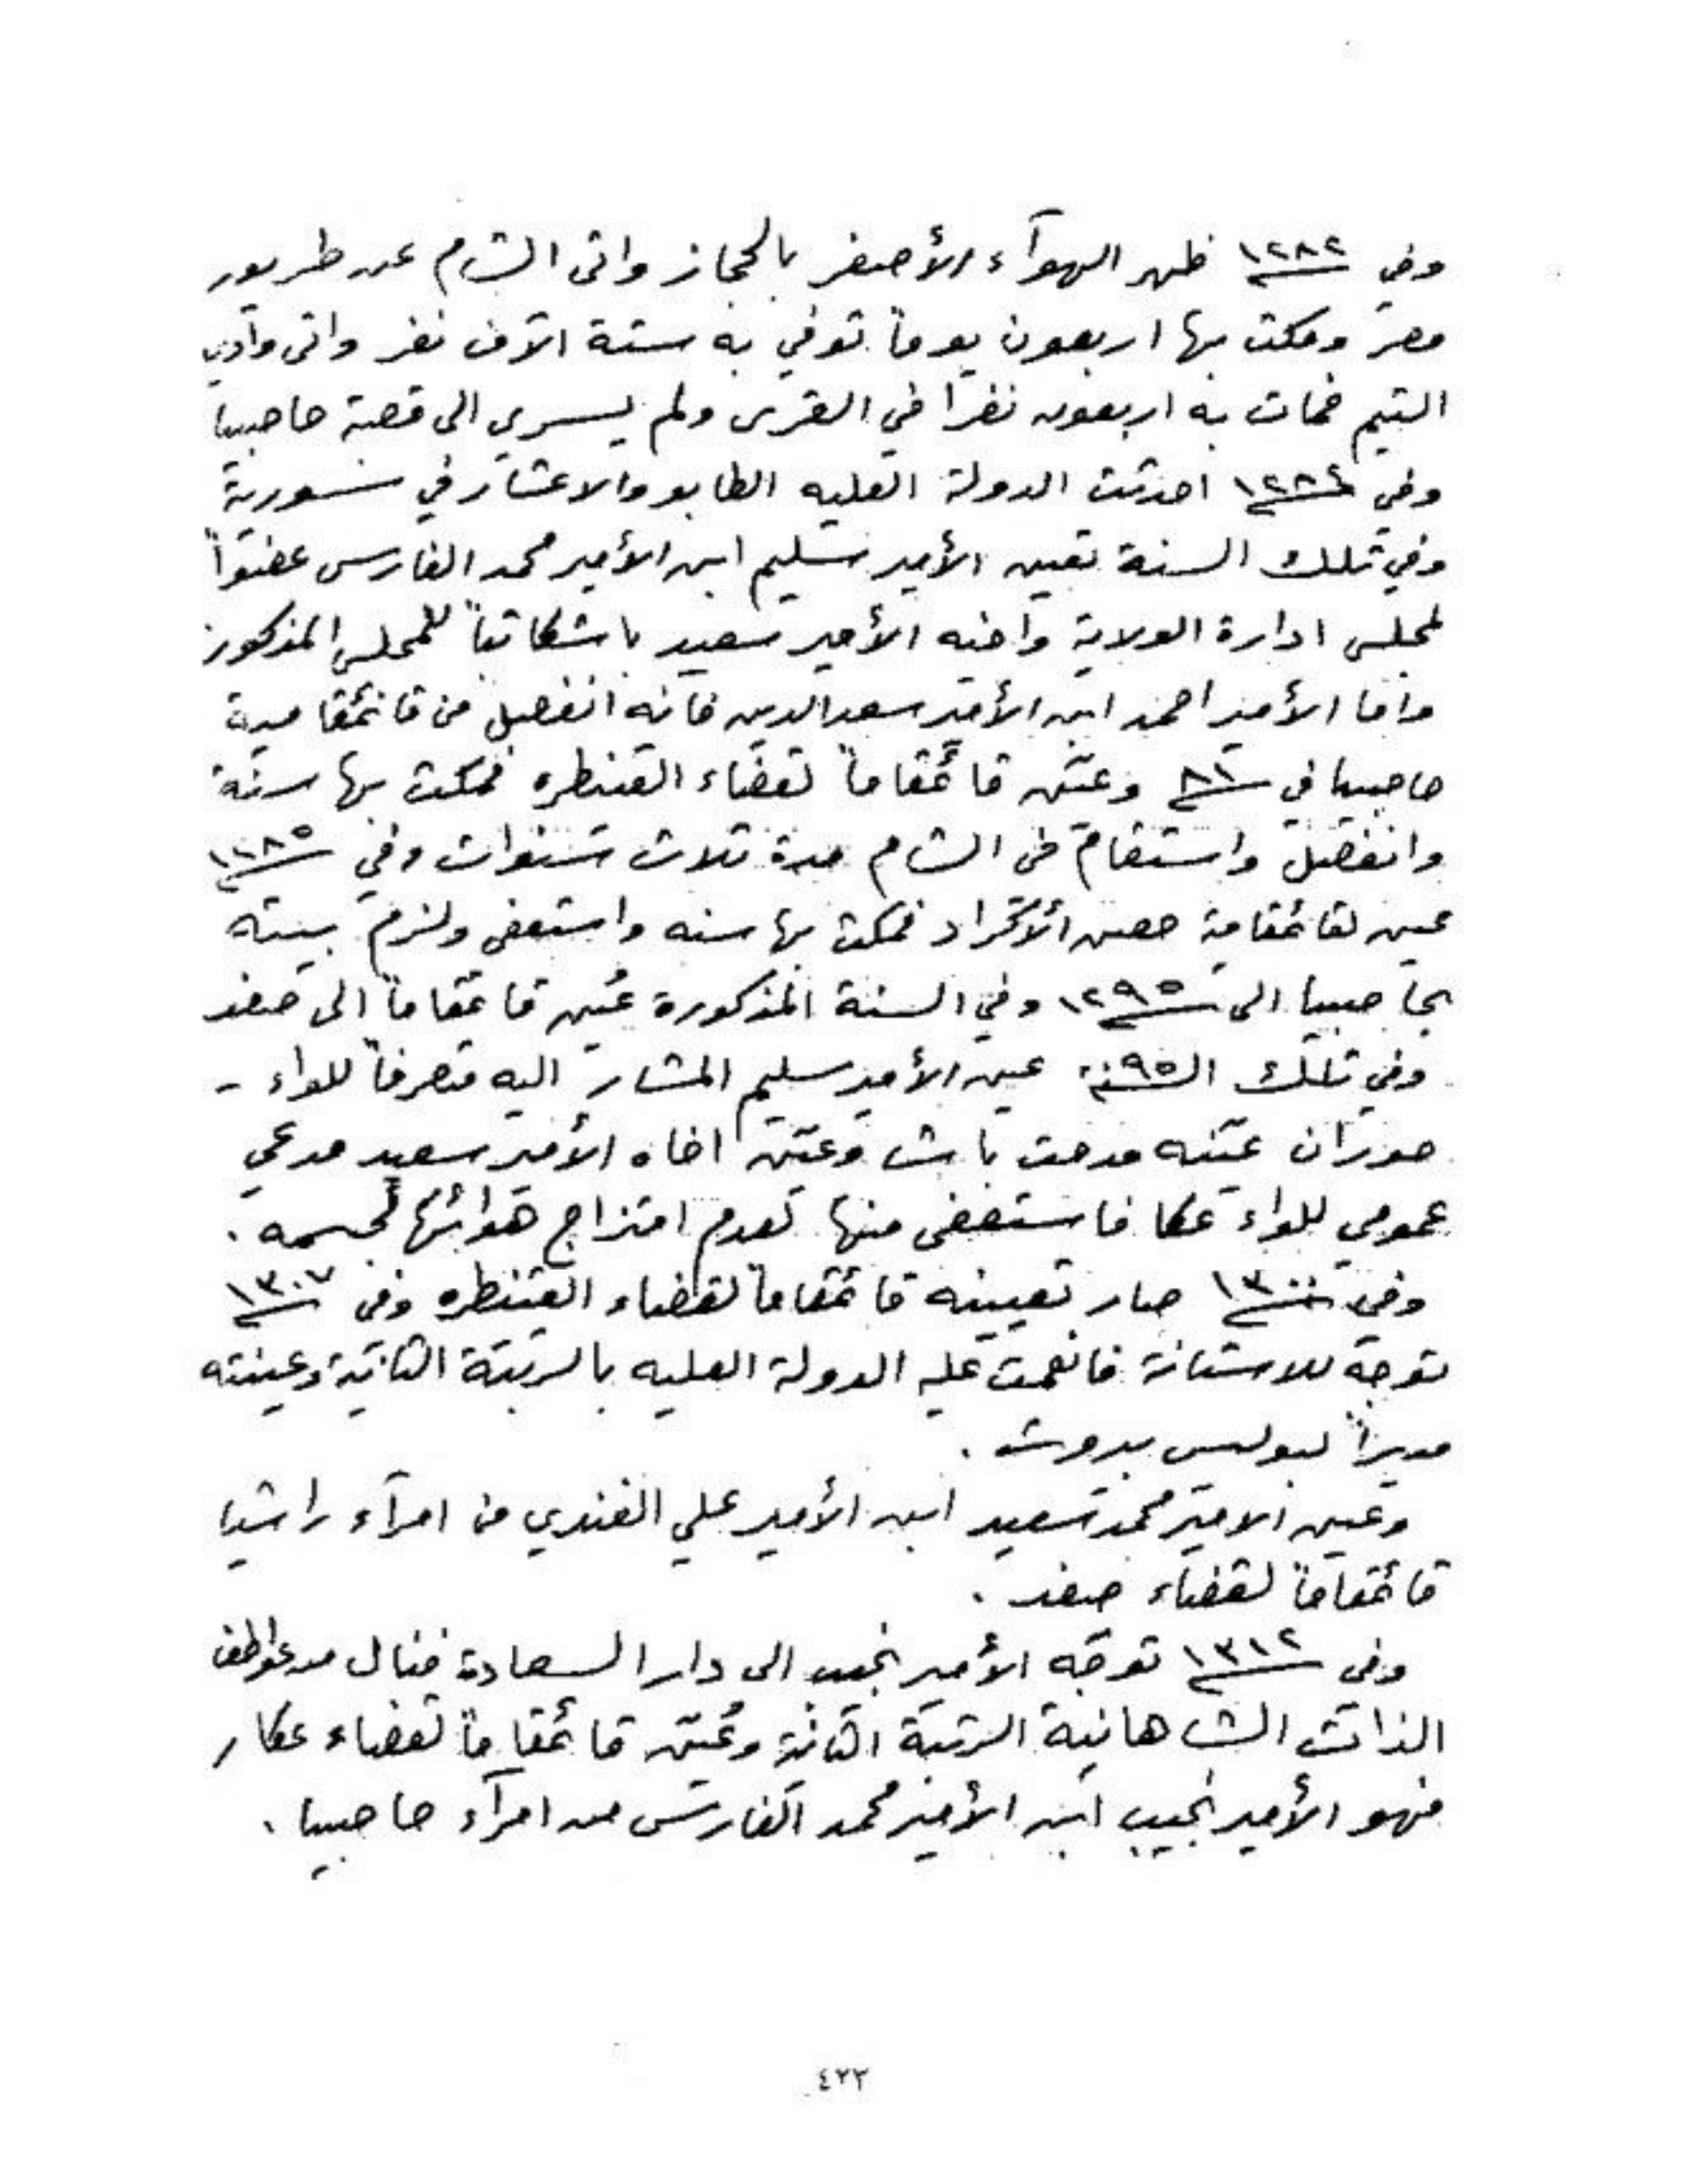 وفي ١٢٨٢ ظهر الهوآء الأصفر بالحجاز واتى الشام عن طريق
مصر ومكث بها اربعون يوماً توفي به ستة الآف نفر واتى وادي
التيم فمات به اربعون نفراً في القرى ولم يسري الى قصبة حاصبيا
وفي ١٢٨٤ احدثت الدولة العليه الطابو والاعشار في سورية
وفي تلك السنة تعين الأمير سليم ابن الأمير محمد الفارس عضواً
لمجلس ادارة الولاية واخيه الأمير سعيد باشكاتباً للمجلس المذكور
واما الأمير احمد ابن الأمير سعد الدين فانه انفصل من قائمقامية
حاصبيا في ٨١ وعيّن قائمقاماً لقضاء القنيطره فمكث بها سنة
وانفصل واستقام في الشام مدة ثلاث سنوات وفي ١٢٨٥
عين لقائمقامية حصن الأكراد فمكث بها سنه واستعفى ولزم بيته
بحاصبيا الى ١٢٩٥ وفي السنة المذكورة عُين قائمقاماً الى صفد
وفي تلك السنة ٩٥ عين الأمير سليم المشار اليه متصرفاً للواء -
حوران عيّنه مدحت باشا وعيّن اخاه الأمير سعيد مدعي
عمومي للواء عكا فاستعفى منها لعدم امتزاج هوائها لجسمه .
وفي ١٣٠٠ صار تعيينه قائمقاماً لقضاء القنيطره وفي ١٣٠٧
توجه للاستانة فانعمت عليه الدولة العليه بالرتبة الثانية وعينته
مديراً لبوليس بيروت .
وعين الامير محمد سعيد ابن الأمير علي الفندي من امرآء راشيا
قائمقاماً لقضاء صفد .
وفي ١٣١٢ توجّه الأمير نجيب الى دار السعادة فنال من عواطف
الذات الشاهانية الرتبة الثانية وعُيّن قائمقاماً لقضاء عكار
فهو الأمير نجيب ابن الأمير محمد الفارس من امرآء حاصبيا .
٤٢٣